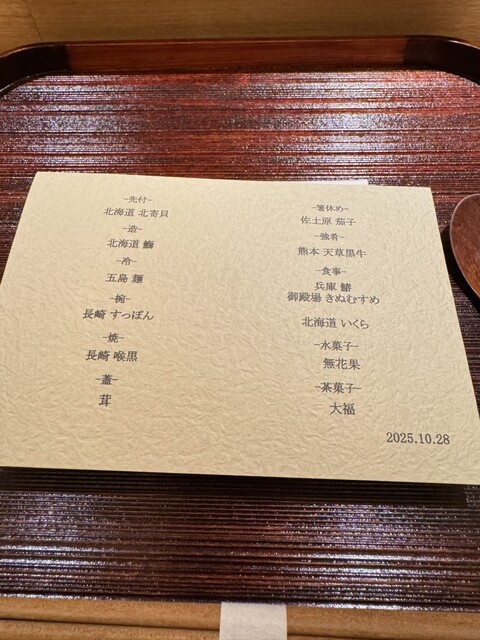 -先付-
北海道 北寄貝
-造-
北海道 鰤
-冷-
五島 麺
-椀-
長崎 すっぽん
-焼-
長崎 喉黒
-蓋-
茸
-箸休め-
佐土原 茄子
-強肴-
熊本 天草黒牛
-食事-
兵庫 鰆
御殿場 きぬむすめ
北海道 いくら
-水菓子-
無花果
-茶菓子-
大福
2025.10.28